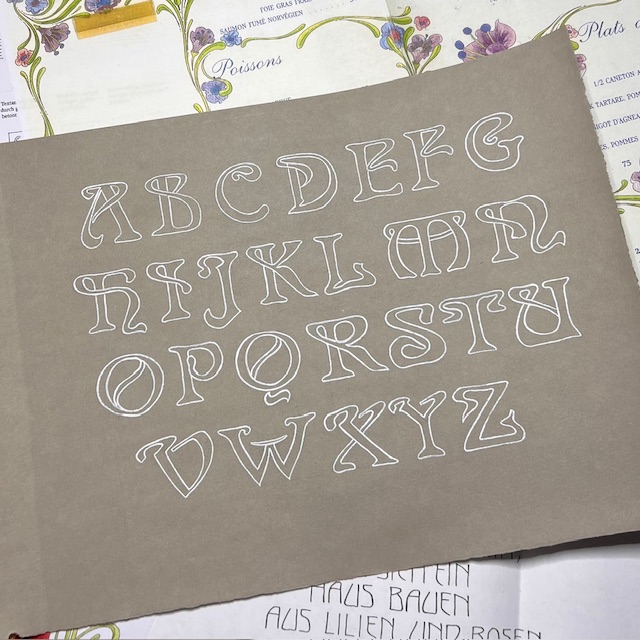 FOIE GRAS
SAUMON FUMÉ NORVÉGIEN
Poissons
Plats
1/2 CANETON
TARTARE. POM
GIGOT D'AGNEA
POMMES
75
Texte
durch
betont
ABCDEFG
HIJKLMN
OPQRSTU
VWXYZ
EIN
HAUS BAUEN
AUS LILIEN UND ROSEN